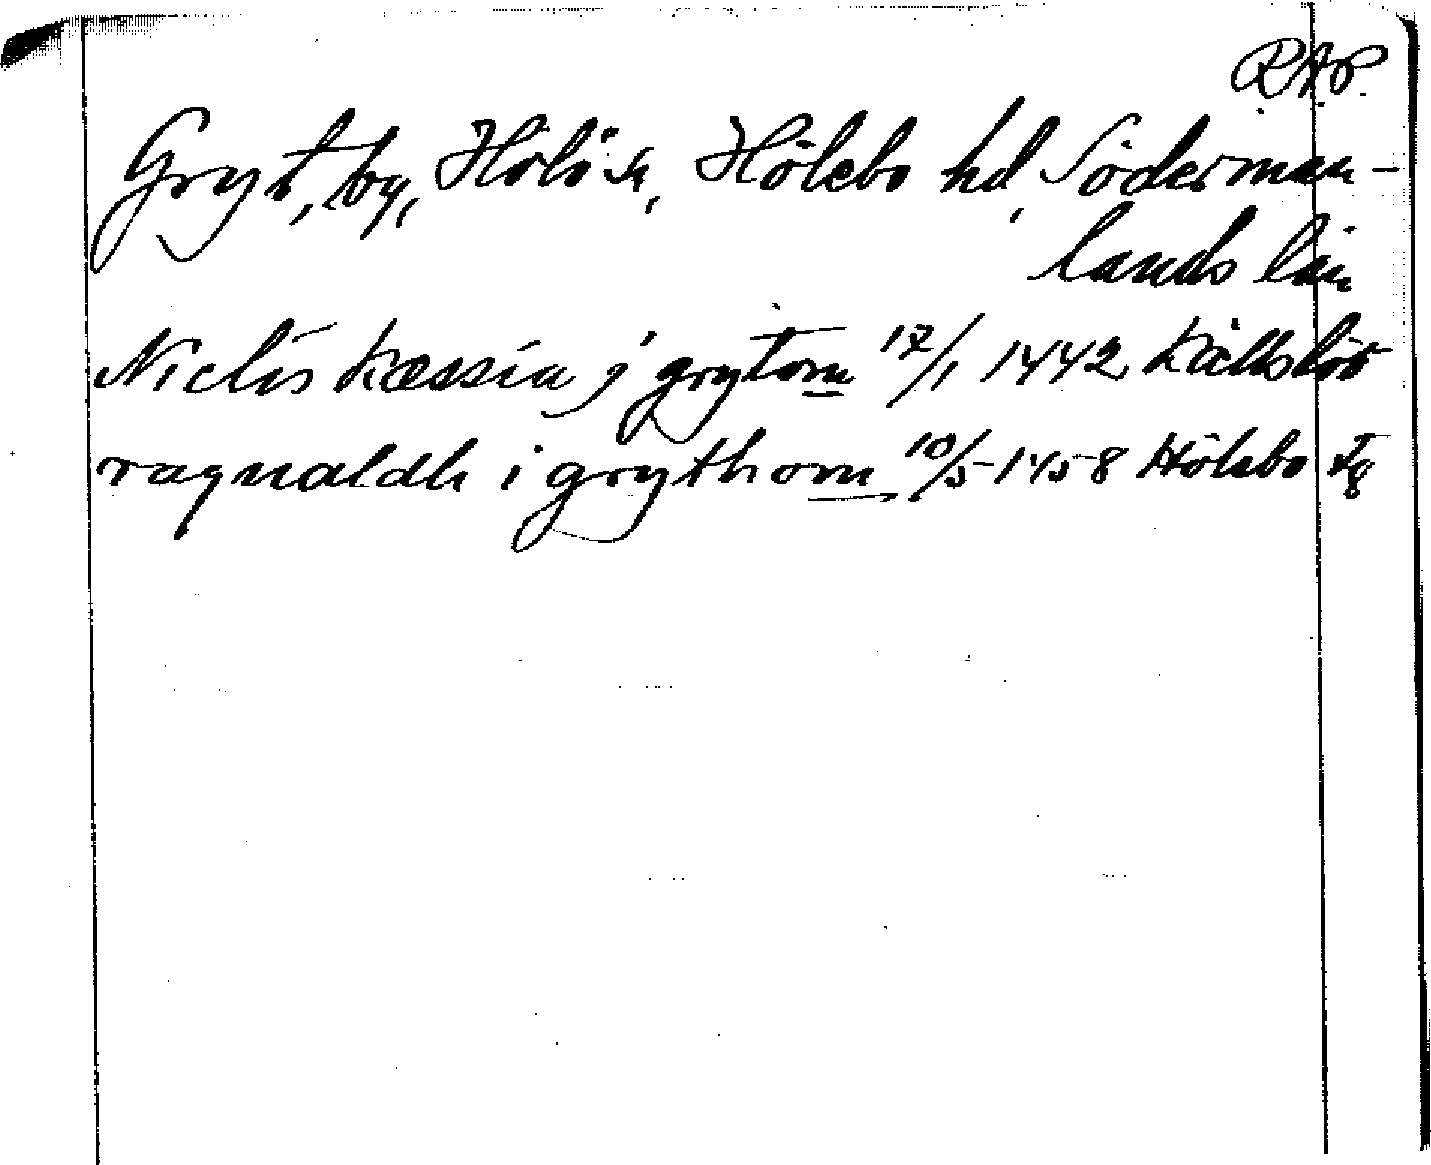 R.A.P.
Gryt, by, Hölö sn, Hölebo hd, Söderman-
lands län
Niclis kæssia j grytom 17/1 1442 Källslöv
ragnaldh i grythom 10/5 1458 Hölebo tg